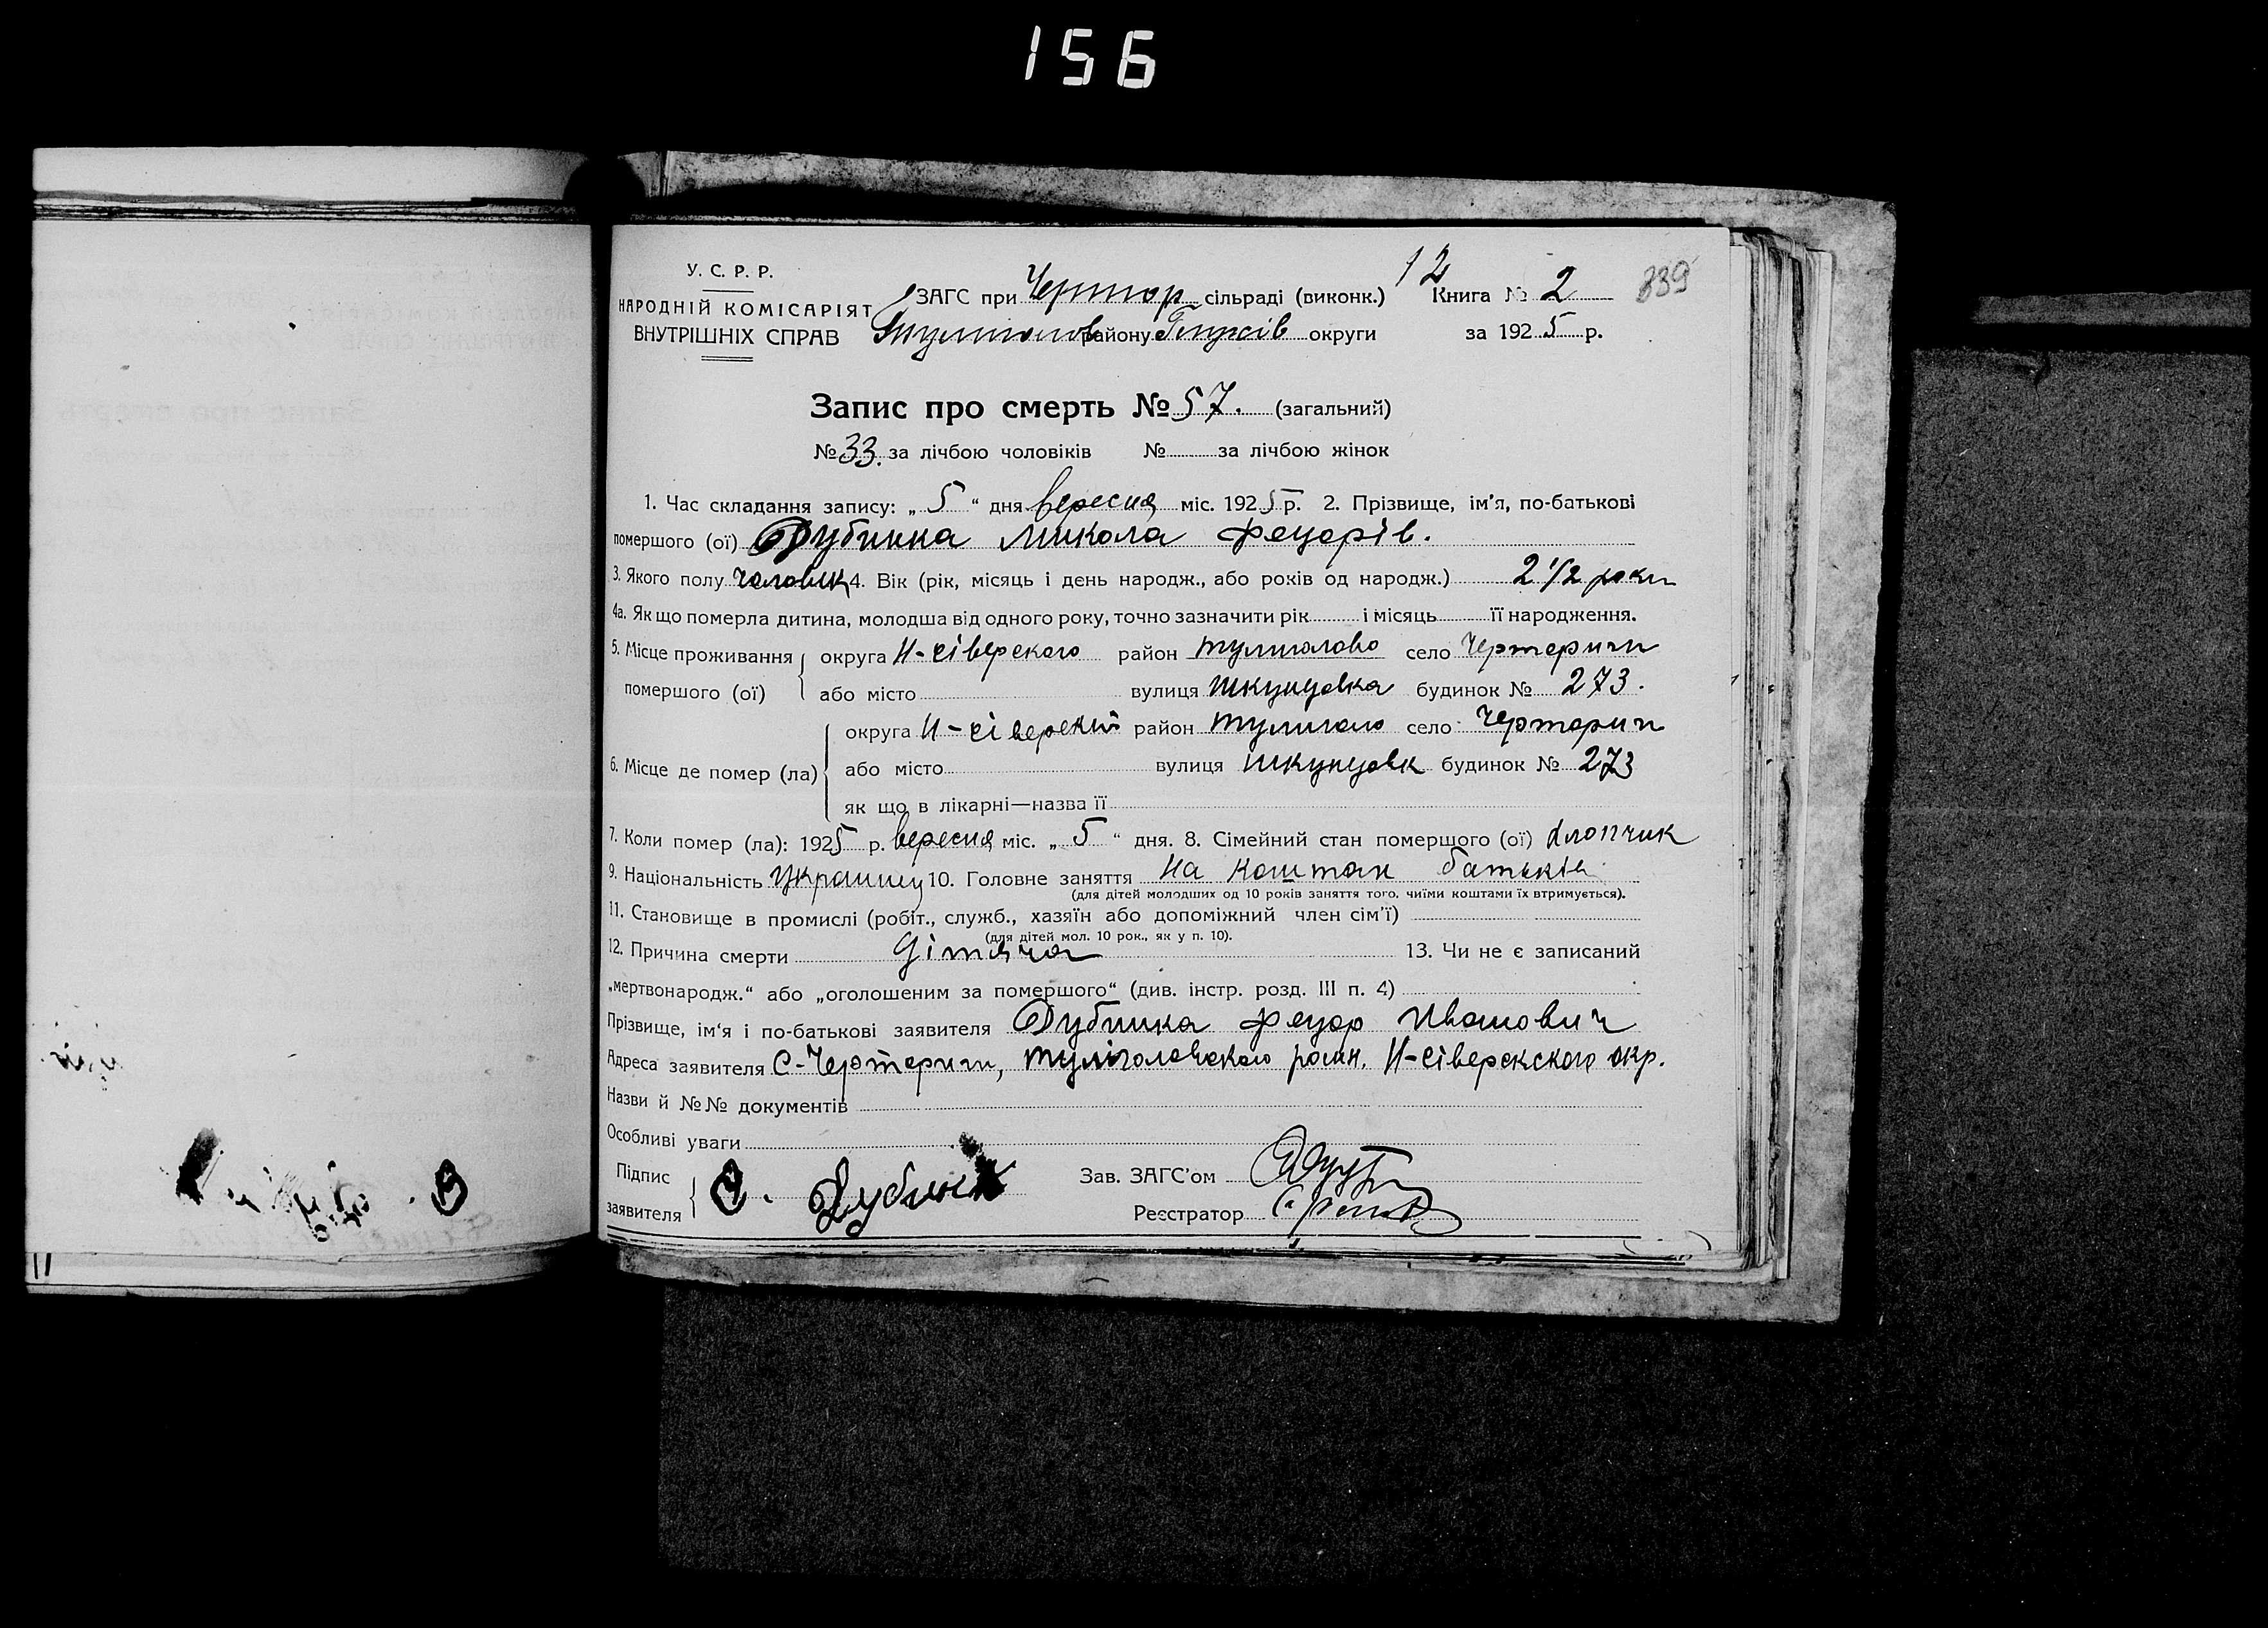 156
У. С. Р. Р.
НАРОДНІЙ КОМІСАРІЯТ
ВНУТРІШНІХ СПРАВ
ЗАГС при Чертор сільраді (виконк.) 12 Книга № 2 339
району округи за 1925 р.
Запис про смерть № 57. (загальний)
№ 33. за лічбою чоловіків № за лічбою жінок
1. Час складання запису: „ 5 “ дня вересня міс. 1925 р. 2. Прізвище, ім’я, по-батькові
помершого (ої) Дубинка Микола Федорів.
3. Якого полу чоловік 4. Вік (рік, місяць і день народж., або років од народж.) 2 1/2 роки
4а. Як що померла дитина, молодша від одного року, точно зазначити рік і місяць її народження.
5. Місце проживання помершого (ої)
округа Н-сіверского район Тулиголово село Черториги
або місто вулиця будинок № 273.
6. Місце де помер (ла)
округа Н-сіверский район Тулиголо село Черториг
або місто вулиця будинок № 273
як що в лікарні—назва її
7. Коли помер (ла): 1925 р. вересня міс. „ 5 “ дня. 8. Сімейний стан помершого (ої) хлопчик
9. Національність 10. Головне заняття На коштах батьків
(для дітей молодших од 10 років заняття того, чиїми коштами їх втримується).
11. Становище в промислі (робіт., служб., хазяїн або допоміжний член сім’ї)
(для дітей мол. 10 рок., як у п. 10).
12. Причина смерти дітяча 13. Чи не є записаний
„мертвонародж.“ або „оголошеним за помершого“ (див. інстр. розд. III п. 4)
Прізвище, ім‘я і по-батькові заявителя Дубинка Федор Иванович
Адреса заявителя С-Черториги, Туліголовского район. Н-сіверскского окр.
Назви й №№ документів
Особливі уваги
Підпис заявителя Дубинк
Зав. ЗАГС’ом
Реєстратор